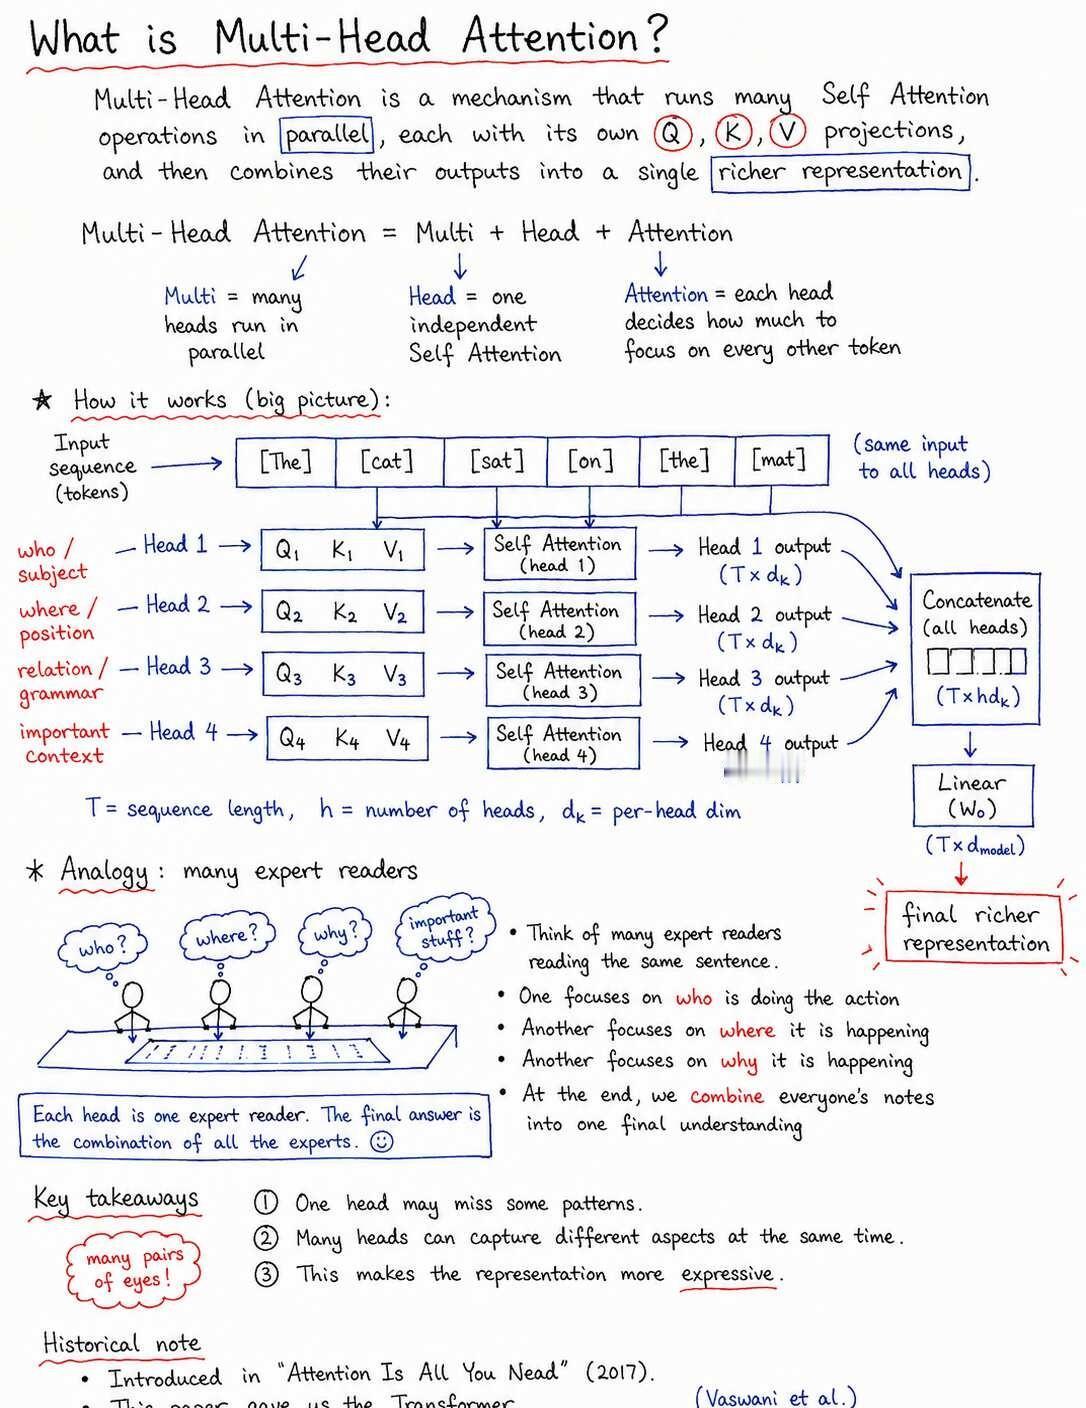 What is Multi-Head Attention?
Multi-Head Attention is a mechanism that runs many Self Attention
operations in parallel, each with its own Q, K, V projections,
and then combines their outputs into a single richer representation.
Multi-Head Attention = Multi + Head + Attention
Multi = many
heads run in
parallel
Head = one
independent
Self Attention
Attention = each head
decides how much to
focus on every other token
★ How it works (big picture):
Input
sequence
(tokens)
[The] [cat] [sat] [on] [the] [mat]
(same input
to all heads)
who /
subject
Head 1
Q₁ K₁ V₁
Self Attention
(head 1)
Head 1 output
(T×dₖ)
where /
position
Head 2
Q₂ K₂ V₂
Self Attention
(head 2)
Head 2 output
(T×dₖ)
relation /
grammar
Head 3
Q₃ K₃ V₃
Self Attention
(head 3)
Head 3 output
(T×dₖ)
important
context
Head 4
Q₄ K₄ V₄
Self Attention
(head 4)
Head 4 output
Concatenate
(all heads)
(T×hdₖ)
Linear
(W₀)
(T×dmodel)
final richer
representation
T = sequence length, h = number of heads, dₖ = per-head dim
* Analogy: many expert readers
who?
where?
why?
important
stuff?
• Think of many expert readers
reading the same sentence.
• One focuses on who is doing the action
• Another focuses on where it is happening
• Another focuses on why it is happening
• At the end, we combine everyone's notes
into one final understanding
Each head is one expert reader. The final answer is
the combination of all the experts. ☺
Key takeaways
many pairs
of eyes!
① One head may miss some patterns.
② Many heads can capture different aspects at the same time.
③ This makes the representation more expressive.
Historical note
• Introduced in "Attention Is All You Nead" (2017).
• This paper gave us the Transformer
(Vaswani et al.)